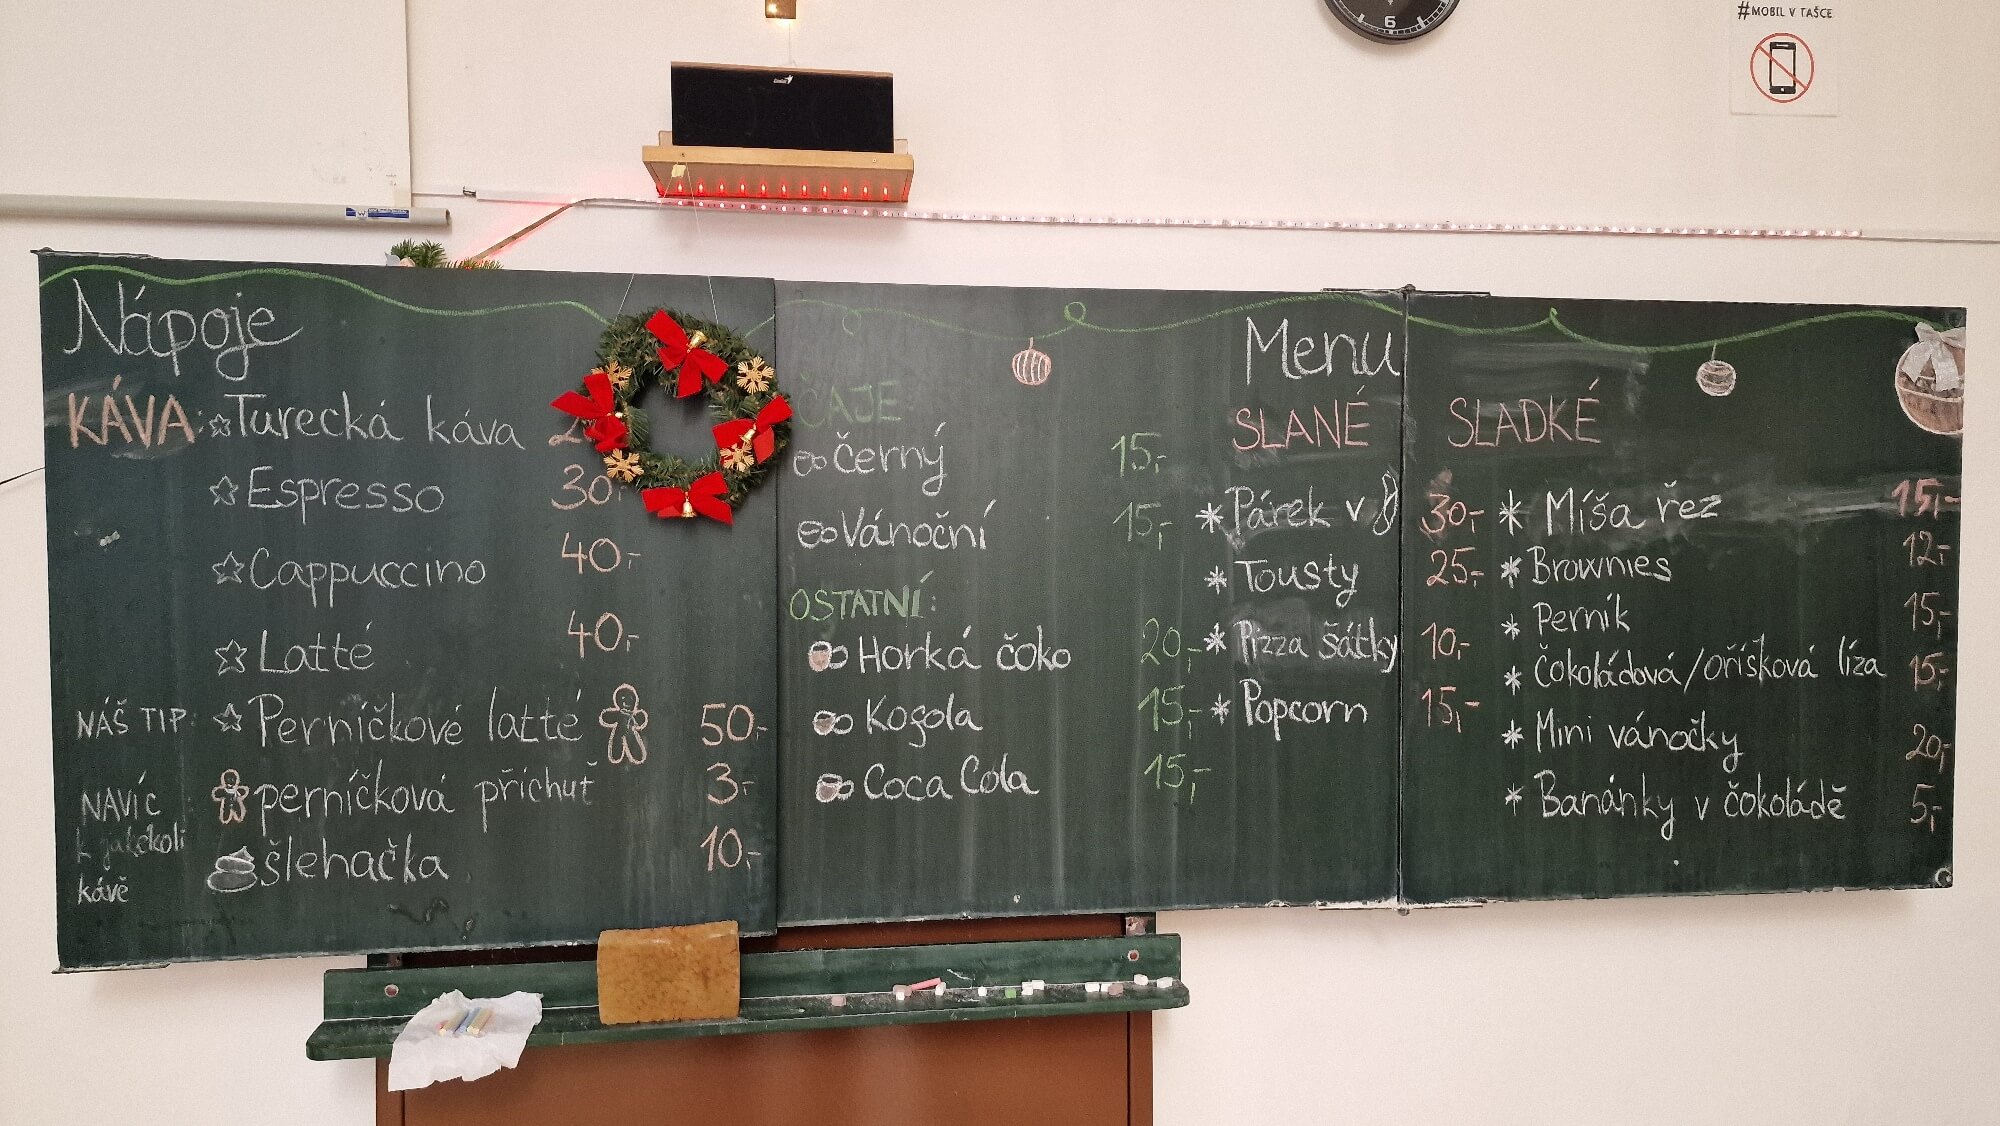 #MOBIL V TAŠCE
6
Nápoje
KÁVA: Turecká káva
Espresso 30,-
Cappuccino 40,-
Latté 40,-
NÁŠ TIP: Perníčkové latté 50,-
NAVÍC k jakékoli kávě
perníčková příchuť 3,-
šlehačka 10,-
ČAJE
černý 15,-
Vánoční 15,-
OSTATNÍ:
Horká čoko 20,-
Kogola 15,-
Coca Cola 15,-
Menu
SLANÉ
* Párek v 30,-
* Tousty 25,-
* Pizza šátky 10,-
* Popcorn 15,-
SLADKÉ
* Míša řez 15,-
* Brownies 12,-
* Perník 15,-
* Čokoládová/oříšková líza 15,-
* Mini vánočky 20,-
* Banánky v čokoládě 5,-